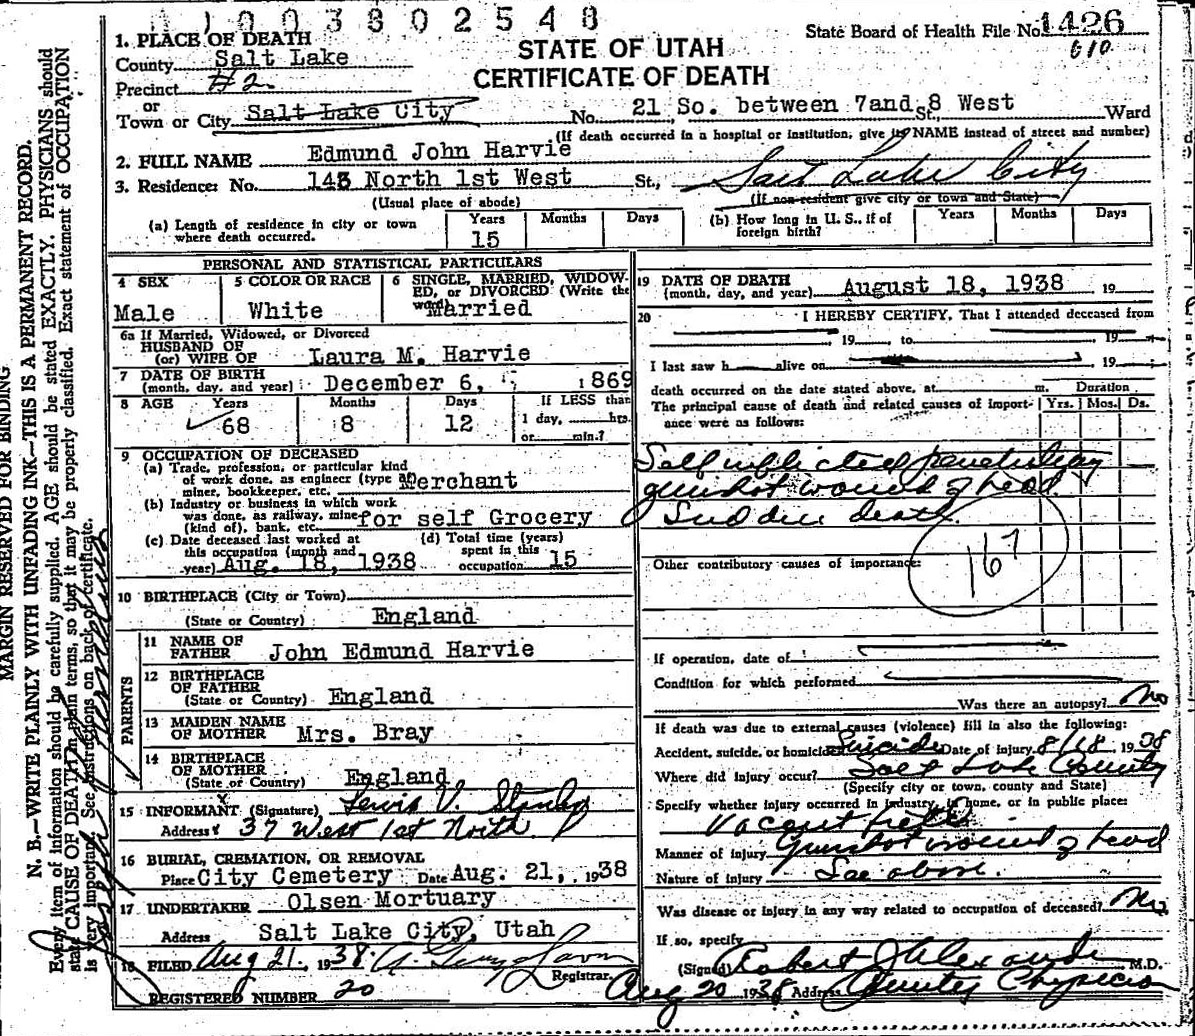 1003802548
State Board of Health File No. 1426
610
STATE OF UTAH
CERTIFICATE OF DEATH
1. PLACE OF DEATH
County Salt Lake
Precinct #2
or
Town or City Salt Lake City No. 21 So. between 7and 8 West St., Ward
(If death occurred in a hospital or institution, give its NAME instead of street and number)
2. FULL NAME Edmund John Harvie
3. Residence: No. 143 North 1st West St., Salt Lake City
(Usual place of abode) (If non-resident give city or town and State)
(a) Length of residence in city or town where death occurred. Years 15 Months Days
(b) How long in U. S., if of foreign birth? Years Months Days
PERSONAL AND STATISTICAL PARTICULARS
4 SEX Male
5 COLOR OR RACE White
6 SINGLE, MARRIED, WIDOWED, or DIVORCED (Write the word) Married
6a If Married, Widowed, or Divorced
HUSBAND OF
(or) WIFE OF Laura M. Harvie
7 DATE OF BIRTH
(month, day, and year) December 6, 1869
8 AGE Years 68 Months 8 Days 12 If LESS than 1 day, hrs. or min.?
9 OCCUPATION OF DECEASED
(a) Trade, profession, or particular kind
of work done, as engineer (type of
miner, bookkeeper, etc. Merchant
(b) Industry or business in which work
was done, as railway, mine
(kind of), bank, etc. for self Grocery
(c) Date deceased last worked at
this occupation (month and
year) Aug. 18, 1938
(d) Total time (years)
spent in this
occupation 15
10 BIRTHPLACE (City or Town)
(State or Country) England
PARENTS
11 NAME OF
FATHER John Edmund Harvie
12 BIRTHPLACE
OF FATHER
(State or Country) England
13 MAIDEN NAME
OF MOTHER Mrs. Bray
14 BIRTHPLACE
OF MOTHER
(State or Country) England
15 INFORMANT (Signature) Lewis V.
Address 37 West 1st North
16 BURIAL, CREMATION, OR REMOVAL
Place City Cemetery Date Aug. 21, 1938
17 UNDERTAKER Olsen Mortuary
Address Salt Lake City, Utah
18 FILED Aug 21. 1938.
Registrar.
REGISTERED NUMBER 20
19 DATE OF DEATH
(month, day, and year) August 18, 1938 19
20 I HEREBY CERTIFY, That I attended deceased from
19 to 19
I last saw h alive on 19
death occurred on the date stated above, at m. Duration
The principal cause of death and related causes of importance were as follows: Yrs. Mos. Ds.
Self inflicted penetrating
gunshot wound of head.
Sudden death.
167
Other contributory causes of importance:
If operation, date of
Condition for which performed
Was there an autopsy? No
If death was due to external causes (violence) fill in also the following:
Accident, suicide, or homicide Suicide Date of injury 8/18 1938
Where did injury occur? Salt Lake County
(Specify city or town, county and State)
Specify whether injury occurred in industry, in home, or in public place:
Vacant field
Manner of injury Gunshot wound of head
Nature of injury See above.
Was disease or injury in any way related to occupation of deceased? No
If so, specify
(Signed) Robert J Alexander M.D.
Aug 20 1938 Address County Physician
MARGIN RESERVED FOR BINDING
N. B.—WRITE PLAINLY WITH UNFADING INK—THIS IS A PERMANENT RECORD.
Every item of information should be carefully supplied. AGE should be stated EXACTLY. PHYSICIANS should
state CAUSE OF DEATH in plain terms, so that it may be properly classified. Exact statement of OCCUPATION
is very important. See instructions on back of certificate.